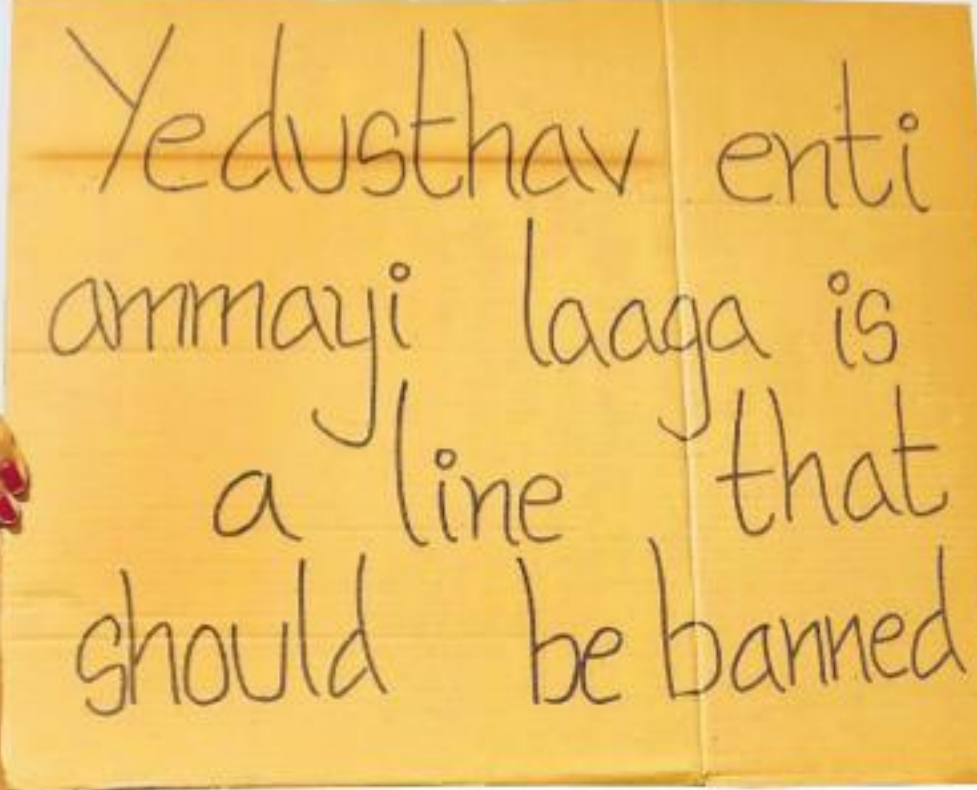 Yedusthav enti
ammayi laaga is
a line that
should be banned